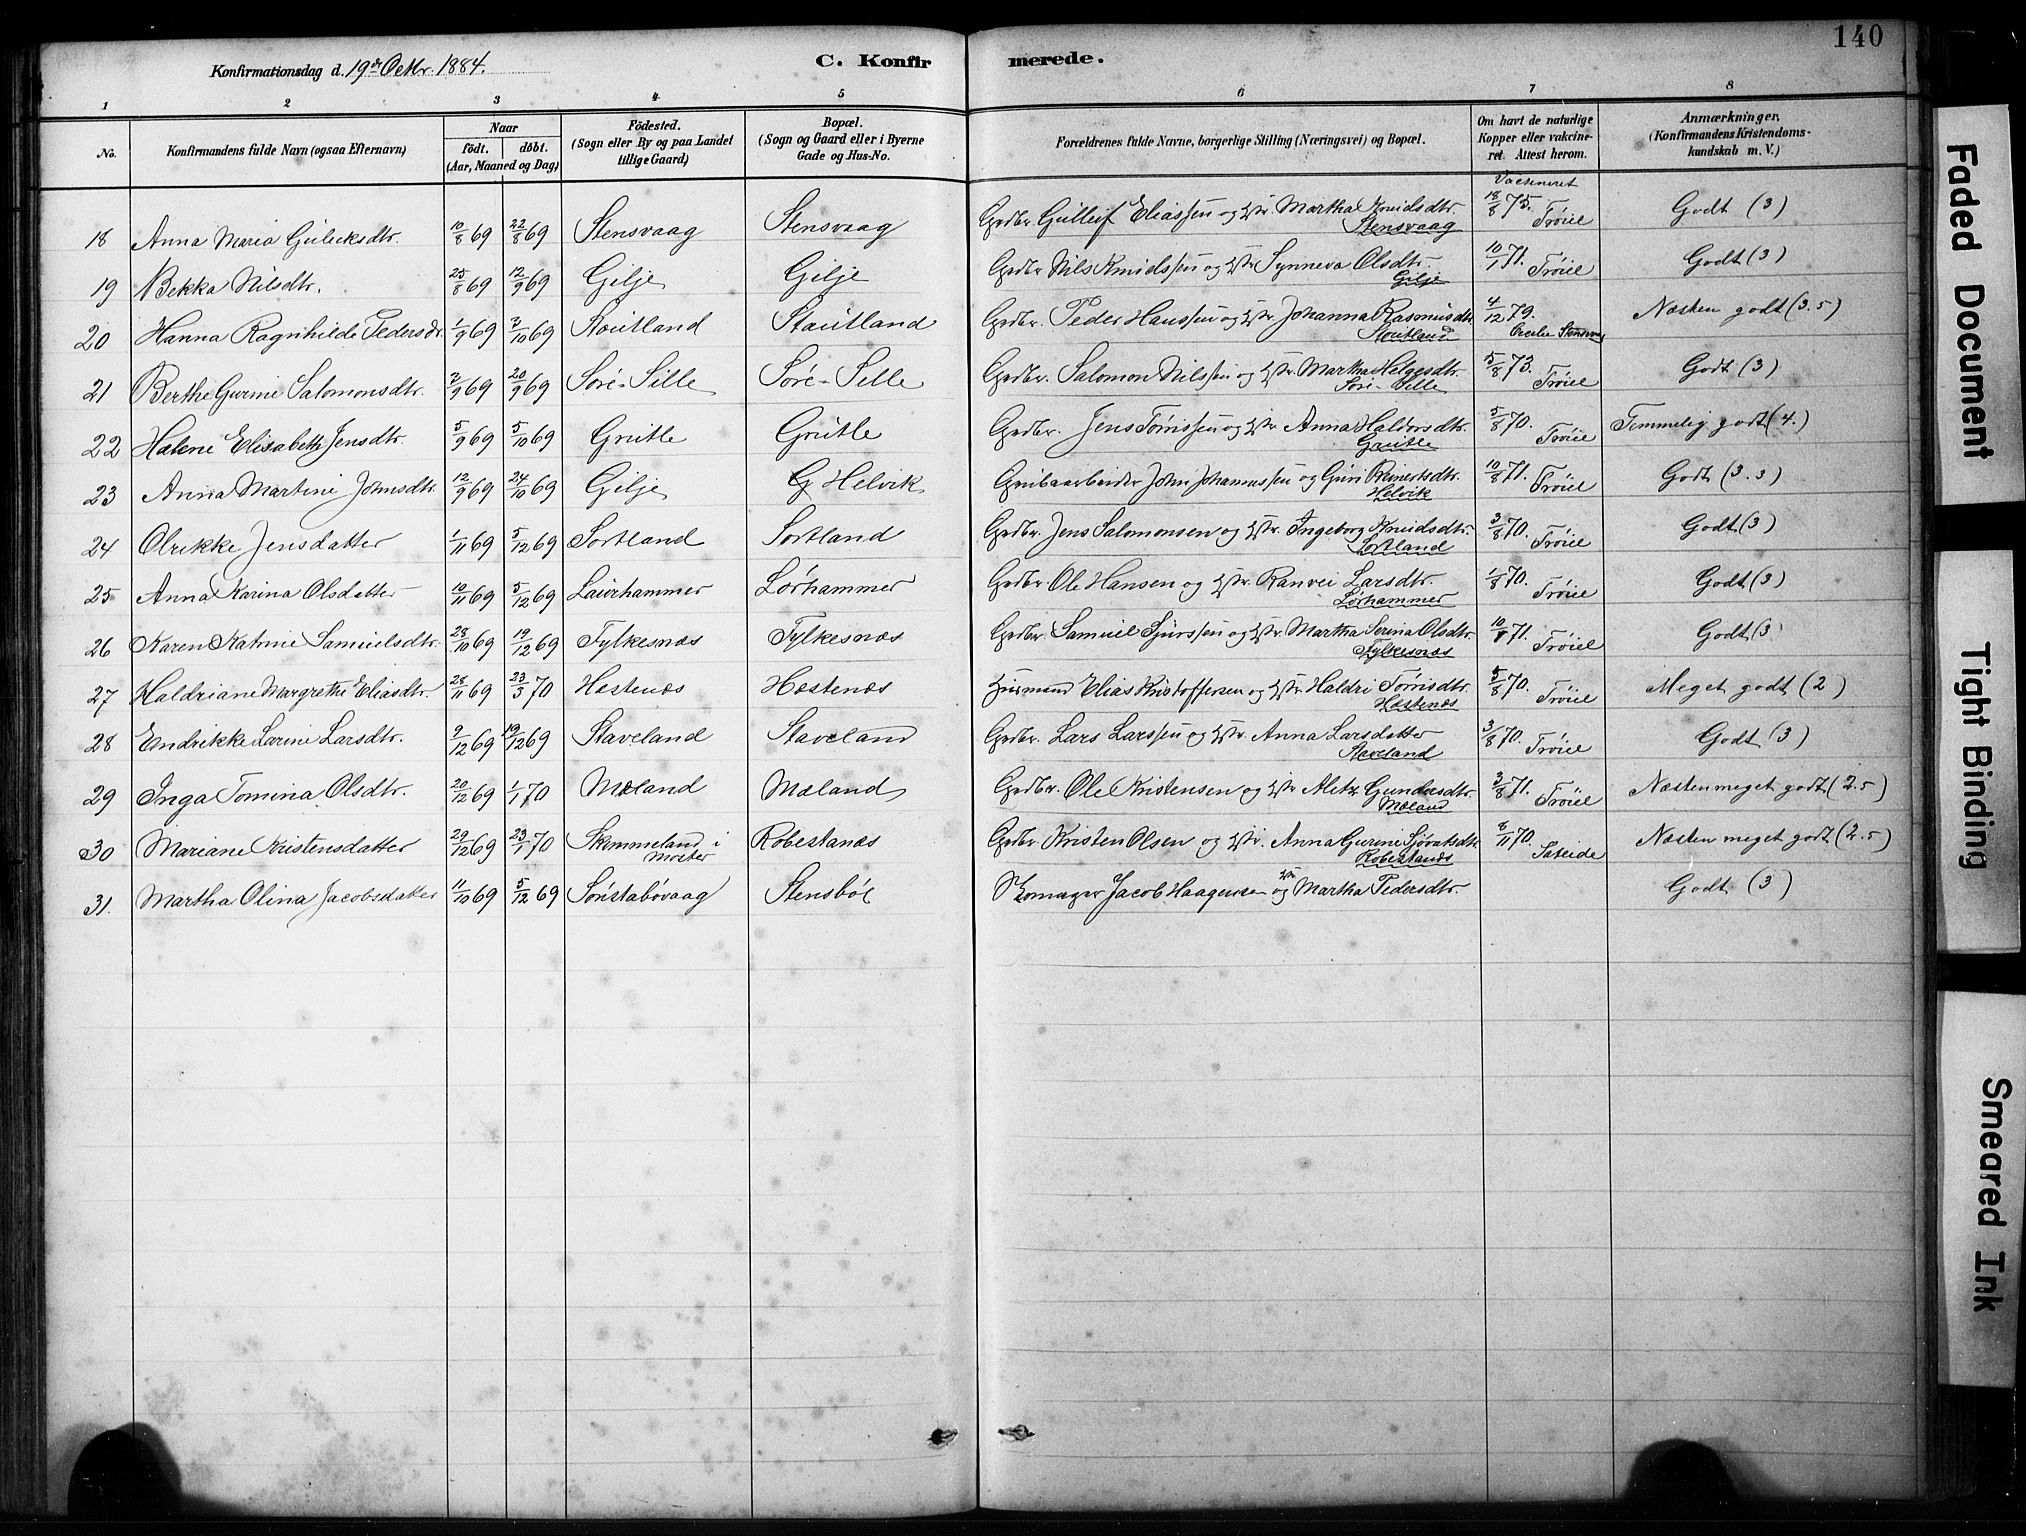 140
Konfirmationsdag d. 19de Octbr. 1884.
C. Konfirmerede.
1 2 3 4 5 6 7 8
No. Konfirmandens fulde Navn (ogsaa Efternavn) Naar födt. döbt. (Aar, Maaned og Dag) Födested. (Sogn eller By og paa Landet tillige Gaard) Bopæl. (Sogn og Gaard eller i Byerne Gade og Hus-No. Forældrenes fulde Navne, borgerlige Stilling (Næringsvei) og Bopæl. Om havt de naturlige Kopper eller vakcineret. Attest herom. Anmærkninger. (Konfirmandens Kristendomskundskab m. V.)
18 Anna Maria Guleksdtr. 10/8 69 22/8 69 Stensvaag Stensvaag Grdbr. Gulleif Eliassen og Hstr. Martha Knudsdtr. Stensvaag Vaccineret 18/8 75. Trøiel Godt (3)
19 Bekka Nilsdtr. 25/8 69 12/9 69 Gilje Gilje Grdbr. Nils Knudssen og Hstr. Synneva Olsdtr. Gilje 10/1 71. Trøiel Godt (3)
20 Hanna Ragnhilde Pedersdr. 1/9 69 3/10 69 Stoutland Stautland Grdbr. Peder Hanssen og Hstr. Johanna Rasmusdtr. Stoutland 4/12 79. Cecilie Stensvaag Næsten godt (3.5)
21 Berthe Gurine Salomonsdtr. 2/9 69 20/9 69 Söre-Sille Søre-Selle Grdbr. Salomon Nilssen og Hstr. Martha Helgesdtr. Søre-Selle 5/8 73. Trøiel Godt (3)
22 Helene Elisabeth Jensdtr. 5/9 69 5/10 69 Grutle Grutle Grdbr. Jens Tørrissen og Hstr. Anna Haldorsdtr. Grutle 5/8 70. Trøiel Temmelig godt (4.)
23 Anna Martine Johnsdtr. 12/9 69 24/10 69 Gilje G Helvik Grubearbeider John Johannessen og Guri Reinertsdtr. Helvik 10/8 71. Trøiel Godt (3.3)
24 Olrikke Jensdatter 1/11 69 5/12 69 Sortland Sortland Grdbr. Jens Salomonsen og Hstr. Ingeborg Knudsdtr. Sortland 3/8 70. Trøiel Godt (3)
25 Anna Karina Olsdatter 10/11 69 5/12 69 Laurhammer Lørhammer Grdbr. Ole Hansen og Hstr. Ranvei Larsdtr. Lørhammer 1/8 70. Trøiel Godt (3)
26 Karen Katrine Samuelsdtr. 28/10 69 19/12 69 Fylkesnæs Fylkesnæs Grdbr. Samuel Sjurssen og Hstr. Martha Serina Olsdtr. Fylkesnæs 10/8 71. Trøiel Godt (3)
27 Haldriane Margrethe Eliasdtr. 28/11 69 23/3 70 Hestenæs Hestenæs Husmand Elias Kristoffersen og Hstr. Haldri Tørrisdtr. Hestenæs 5/8 70. Trøiel Meget godt (2)
28 Endrikke Larine Larsdtr. 9/12 69 19/12 69 Staveland Staveland Grdbr. Lars Larssen og Hstr. Anna Larsdatter Staveland 3/8 70. Trøiel Godt (3)
29 Inga Tomina Olsdtr. 20/12 69 1/1 70 Mæland Mæland Grdbr. Ole Kristensen og Hstr. Aleta Gundersdtr. Mæland 3/8 71. Trøiel Næsten meget godt (2.5)
30 Mariane Kristensdatter 29/12 69 23/1 70 Skimmeland i Moster Robestanæs Grdbr. Kristen Olsen og Hstr. Anna Gurine Sjovatsdtr. Robestanæs 8/11 70. Sateide Næsten meget godt (2.5)
31. Martha Olina Jacobsdatter 11/10 69 5/12 69 Sønstabøvaag Stensbøl Skomager Jacob Haagensen og Hstr. Martha Pedersdtr. Godt (3)
Faded Document
Tight Binding
Smeared Ink